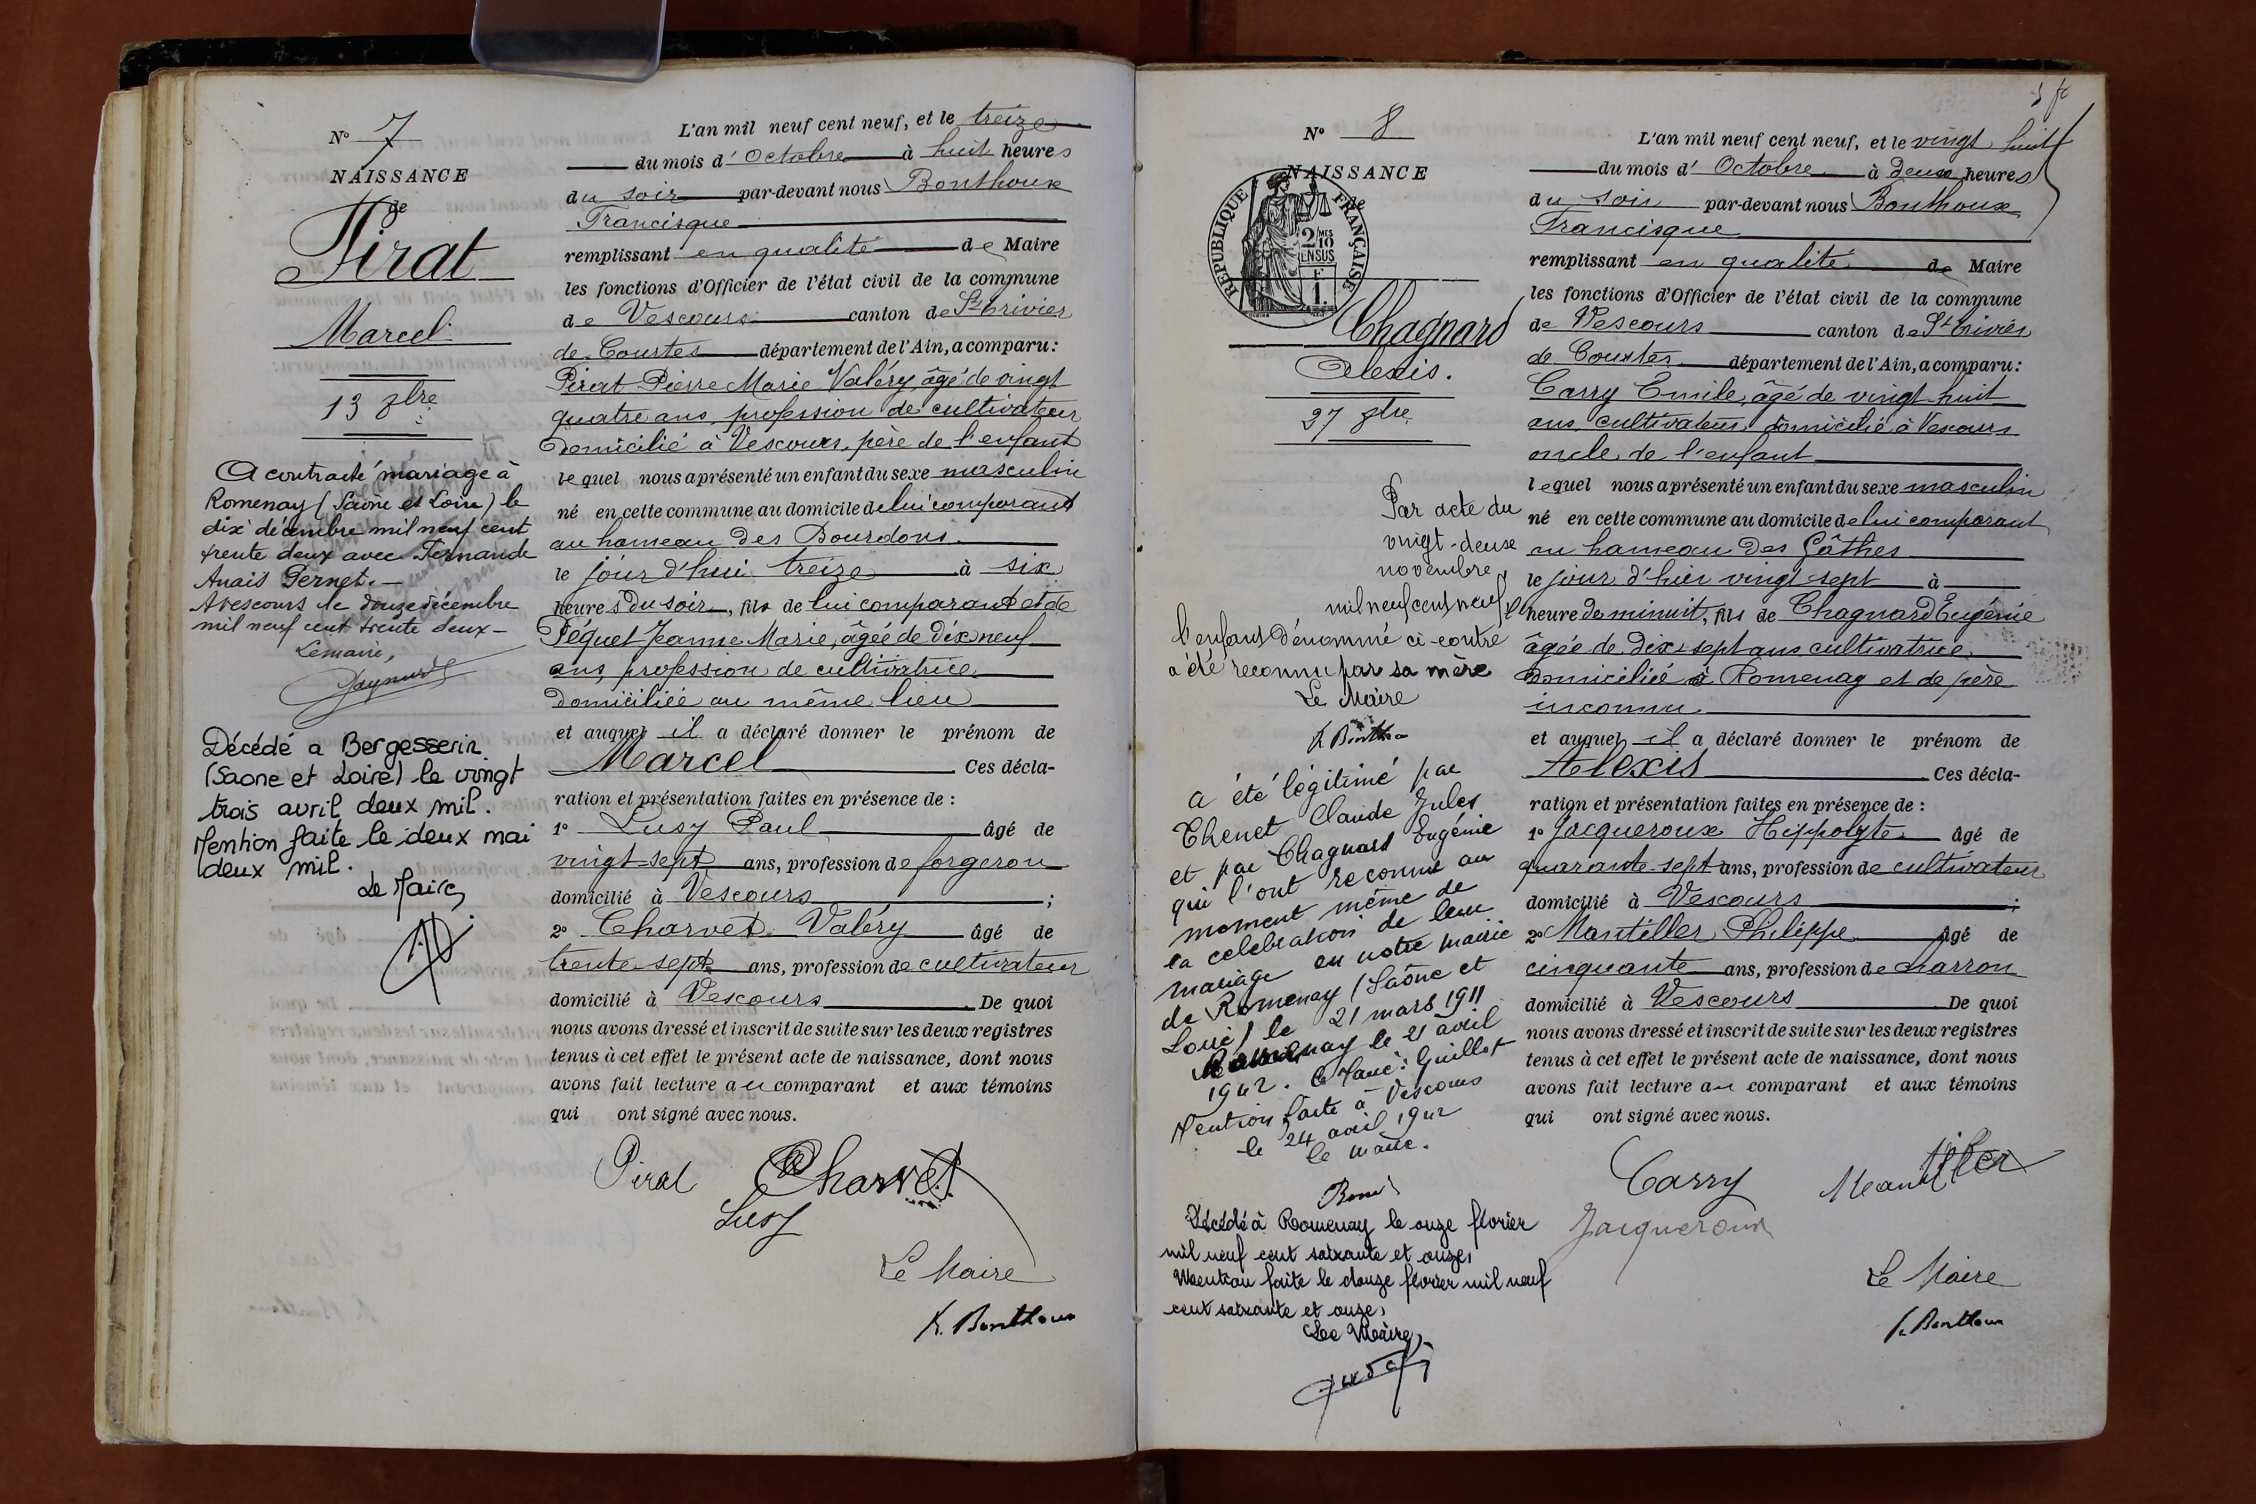 N° 7
NAISSANCE
de
Pirat
Marcel
13 8bre
A contracté mariage à
Romenay (Saône et Loire) le
dix décembre mil neuf cent
trente deux avec Fernande
Anaïs Pernet.—
A Vescours le douze décembre
mil neuf cent trente deux —
Le maire,
Décédé a Bergesserin
(Saone et Loire) le vingt
trois avril deux mil.
Mention faite le deux mai
deux mil.
Le Maire,
L'an mil neuf cent neuf, et le treize
du mois d'Octobre à huit heures
du soir par-devant nous Bonthoux
Francisque
remplissant en qualité de Maire
les fonctions d'Officier de l'état civil de la commune
de Vescours canton de St Trivier
de Courtes département de l'Ain, a comparu :
Pirat Pierre Marie Valéry âgé de vingt
quatre ans, profession de cultivateur
domicilié à Vescours, père de l'enfant
lequel nous a présenté un enfant du sexe masculin
né en cette commune au domicile de lui comparant
au hameau des Bourdons
le jour d'hui treize à six
heures du soir, fils de lui comparant et de
Péquet Jeanne Marie, âgée de dix neuf
ans, profession de cultivatrice
domiciliée au même lieu
et auquel il a déclaré donner le prénom de
Marcel Ces décla-
ration et présentation faites en présence de :
1° Lusy Paul âgé de
vingt-sept ans, profession de forgeron
domicilié à Vescours ;
2° Charvet Valéry âgé de
trente-sept ans, profession de cultivateur
domicilié à Vescours De quoi
nous avons dressé et inscrit de suite sur les deux registres
tenus à cet effet le présent acte de naissance, dont nous
avons fait lecture au comparant et aux témoins
qui ont signé avec nous.
Pirat Charvet
Lusy
Le Maire
F. Bonthoux
N° 8
NAISSANCE
de
RÉPUBLIQUE FRANÇAISE
2/10 MES
EN SUS
1 F.
Chagnard
Alexis.
27 8bre
Par acte du
vingt-deux
novembre
mil neuf cent neuf
l'enfant dénommé ci-contre
a été reconnu par sa mère
Le Maire
F. Bonthoux
a été légitimé par
Thenet Claude Jules
et par Chagnard Eugénie
qui l'ont reconnu au
moment même de
la célébration de leur
mariage en notre mairie
de Romenay (Saône et
Loire) le 21 mars 1911
Romenay le 21 avril
1942. Le Maire : Guillot
Mention faite à Vescours
le 24 avril 1942
le maire.
Décédé à Romenay le onze février
mil neuf cent soixante et onze,
Mention faite le douze février mil neuf
cent soixante et onze,
Le Maire,
L'an mil neuf cent neuf, et le vingt huit
du mois d'Octobre à deux heures
du soir par-devant nous Bonthoux
Francisque
remplissant en qualité de Maire
les fonctions d'Officier de l'état civil de la commune
de Vescours canton de St Trivier
de Courtes département de l'Ain, a comparu :
Carry Emile, âgé de vingt-huit
ans cultivateur domicilié à Vescours
oncle de l'enfant
lequel nous a présenté un enfant du sexe masculin
né en cette commune au domicile de lui comparant
au hameau des Gâthes
le jour d'hier vingt sept à
heure de minuit, fils de Chagnard Eugénie
âgée de dix-sept ans cultivatrice
domiciliée à Romenay et de père
inconnu
et auquel il a déclaré donner le prénom de
Alexis Ces décla-
ration et présentation faites en présence de :
1° Jacqueroux Hippolyte âgé de
quarante-sept ans, profession de cultivateur
domicilié à Vescours ;
2° Mantiller Philippe âgé de
cinquante ans, profession de charron
domicilié à Vescours De quoi
nous avons dressé et inscrit de suite sur les deux registres
tenus à cet effet le présent acte de naissance, dont nous
avons fait lecture au comparant et aux témoins
qui ont signé avec nous.
Carry Mantiller
Jacqueroux
Le Maire
F. Bonthoux